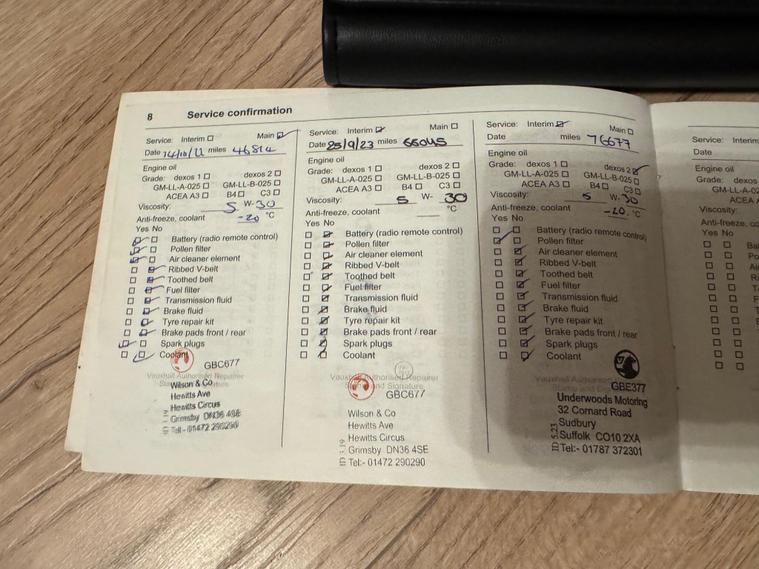 8 Service confirmation
Service: Interim ☐ Main ☑
Date 14/10/22 miles 46814
Engine oil
Grade: dexos 1 ☐ dexos 2 ☐
GM-LL-A-025 ☐ GM-LL-B-025 ☐
ACEA A3 ☐ B4 ☐ C3 ☐
Viscosity: 5 W- 30
Anti-freeze, coolant -20 °C
Yes No
Battery (radio remote control)
Pollen filter
Air cleaner element
Ribbed V-belt
Toothed belt
Fuel filter
Transmission fluid
Brake fluid
Tyre repair kit
Brake pads front / rear
Spark plugs
Coolant
GBC677
Vauxhall Authorised Repairer
Wilson & Co
Hewitts Ave
Hewitts Circus
Grimsby DN36 4SE
Tel:- 01472 290290
Service: Interim ☑ Main ☐
Date 25/9/23 miles 66045
Engine oil
Grade: dexos 1 ☐ dexos 2 ☐
GM-LL-A-025 ☐ GM-LL-B-025 ☐
ACEA A3 ☐ B4 ☐ C3 ☐
Viscosity: 5 W- 30
Anti-freeze, coolant °C
Yes No
Battery (radio remote control)
Pollen filter
Air cleaner element
Ribbed V-belt
Toothed belt
Fuel filter
Transmission fluid
Brake fluid
Tyre repair kit
Brake pads front / rear
Spark plugs
Coolant
Vauxhall Authorised Repairer
Stamp and Signature
GBC677
Wilson & Co
Hewitts Ave
Hewitts Circus
Grimsby DN36 4SE
Tel:- 01472 290290
ID 1.19
Service: Interim ☑ Main ☐
Date miles 76677
Engine oil
Grade: dexos 1 ☐ dexos 2 ☑
GM-LL-A-025 ☐ GM-LL-B-025 ☐
ACEA A3 ☐ B4 ☐ C3 ☐
Viscosity: 5 W- 30
Anti-freeze, coolant -20 °C
Yes No
Battery (radio remote control)
Pollen filter
Air cleaner element
Ribbed V-belt
Toothed belt
Fuel filter
Transmission fluid
Brake fluid
Tyre repair kit
Brake pads front / rear
Spark plugs
Coolant
Vauxhall Authorised
GBE377
Underwoods Motoring
32 Cornard Road
Sudbury
Suffolk CO10 2XA
Tel:- 01787 372301
ID 5.23
Service: Interim
Date
Engine oil
Grade: dexos
GM-LL-A-0
ACEA
Viscosity:
Anti-freeze, coolant
Yes No